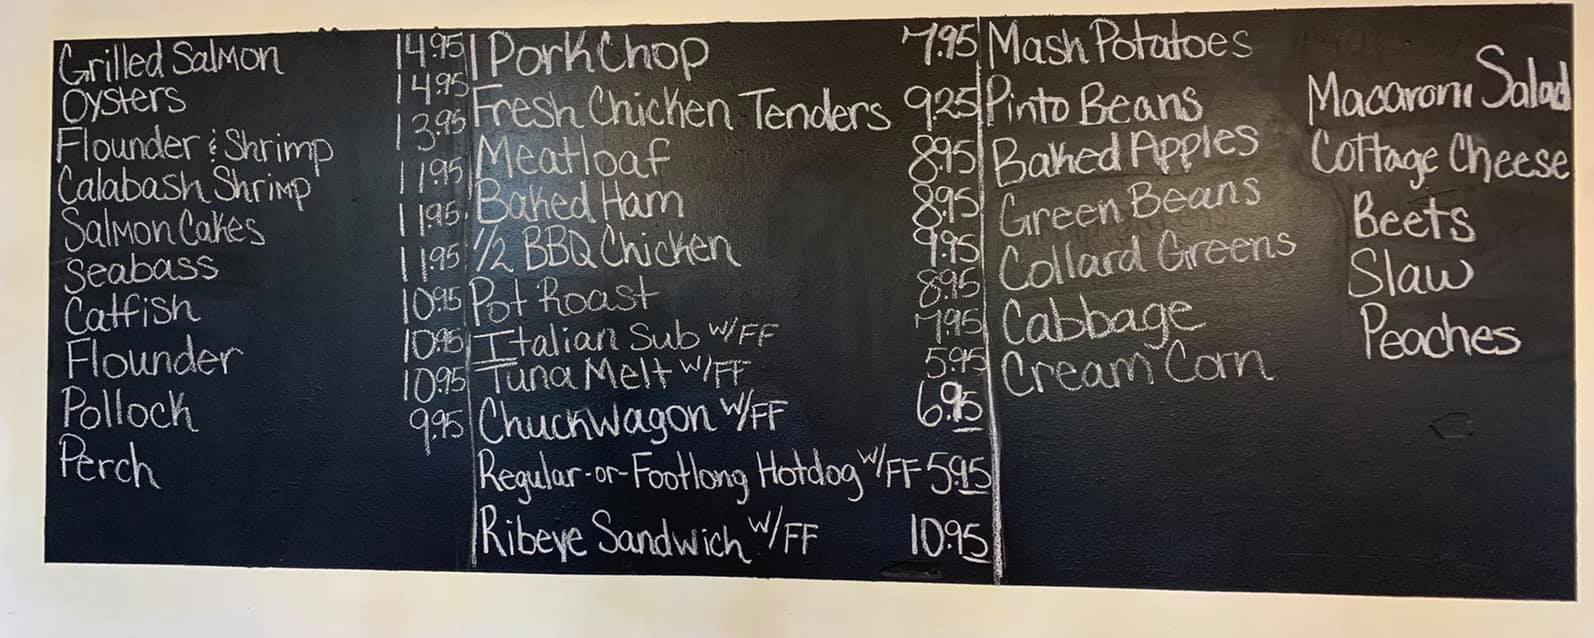 Grilled Salmon 14.95
Oysters 14.95
Flounder & Shrimp 13.95
Calabash Shrimp 11.95
Salmon Cakes 11.95
Seabass 11.95
Catfish 10.95
Flounder 10.95
Pollock 10.95
Perch 9.95
1 Pork Chop 7.95
Fresh Chicken Tenders 9.25
Meatloaf 8.95
Baked Ham 8.95
1/2 BBQ Chicken 9.95
Pot Roast 8.95
Italian Sub w/FF 7.95
Tuna Melt w/FF 5.95
Chuckwagon w/FF 6.95
Regular-or-Footlong Hotdog w/FF 5.95
Ribeye Sandwich w/FF 10.95
Mash Potatoes
Pinto Beans
Baked Apples
Green Beans
Collard Greens
Cabbage
Cream Corn
Macaroni Salad
Cottage Cheese
Beets
Slaw
Peaches